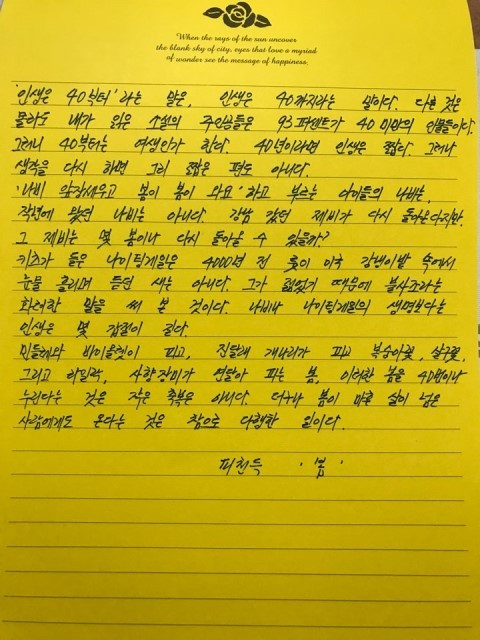 When the rays of the sun uncover
the blank sky of city, eyes that love a myriad
of wonder see the message of happiness.
'인생은 40부터'라는 말은, 인생은 40까지라는 말이다. 다른 것은
몰라도 내가 읽은 소설의 주인공들은 93 퍼센트가 40 미만의 인물들이다.
그러니 40부터는 여생인가 한다. 40년이라면 인생은 짧다. 그러나
생각을 다시 하면 그리 짧은 편도 아니다.
'나비 앞장세우고 봄이 봄이 와요' 하고 부르는 아이들의 나비는,
작년에 왔던 나비는 아니다. 강남 갔던 제비가 다시 돌아온다지만
그 제비는 몇 봄이나 다시 돌아올 수 있을까?
키츠가 들은 나이팅게일은 4000년 전 룻이 이국 강냉이밭 속에서
눈물 흘리며 듣던 새는 아니다. 그가 젊었기 때문에 불사조라는
화려한 말을 써 본 것이다. 나비나 나이팅게일의 생명보다는
인생은 몇 갑절이 길다.
민들레와 바이올렛이 피고, 진달래 개나리가 피고 복숭아꽃, 살구꽃,
그리고 라일락, 사향장미가 연달아 피는 봄, 이러한 봄을 40번이나
누린다는 것은 작은 축복은 아니다. 더구나 봄이 마흔 살이 넘은
사람에게도 온다는 것은 참으로 다행한 일이다.
피천득 '봄'